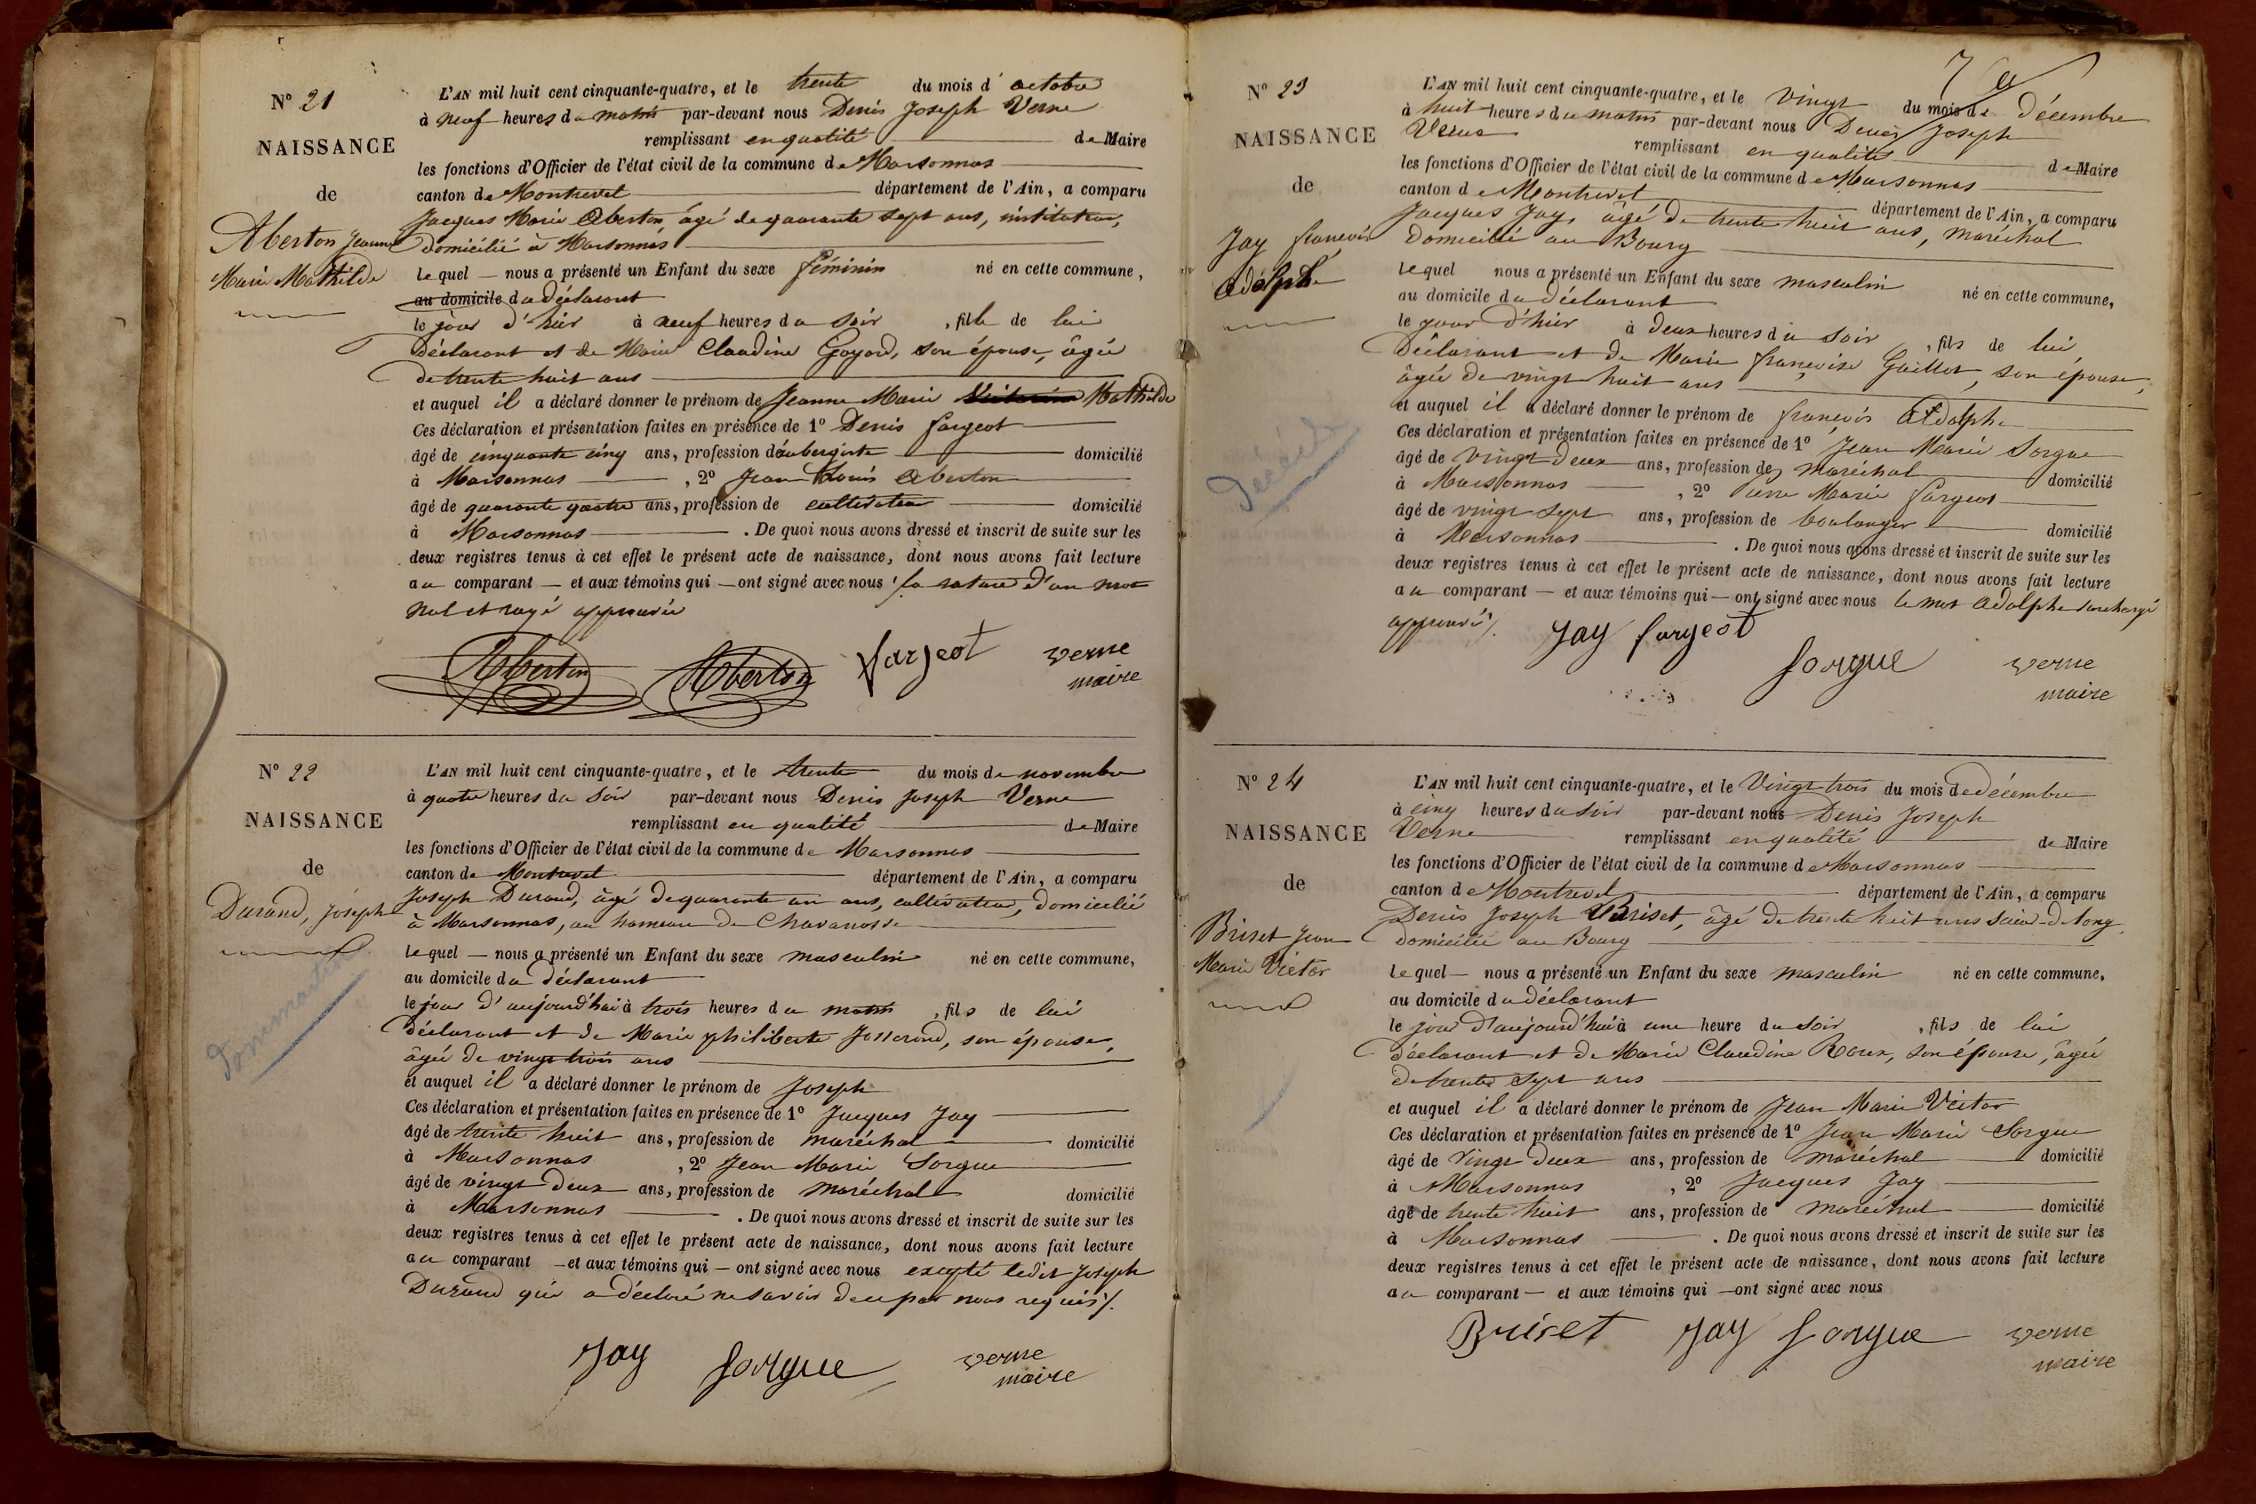 Nº 21
NAISSANCE
de
Aberton Jeanne
Marie Mathilde
L'AN mil huit cent cinquante-quatre, et le trente du mois d' octobre
à neuf heures du matin par-devant nous Denis Joseph Verne
remplissant en qualité de Maire
les fonctions d'Officier de l'état civil de la commune de Marsonnas
canton de Montrevel département de l'Ain, a comparu
Jacques Marie Aberton âgé de quarante sept ans, instituteur,
domicilié à Marsonnas
lequel — nous a présenté un Enfant du sexe féminin né en cette commune,
au domicile du déclarant
le jour d'hier à neuf heures du soir , fille de lui
déclarant et de Marie Claudine Goyard, son épouse, âgée
de trente huit ans
et auquel il a déclaré donner le prénom de Jeanne Marie Mathilde
Ces déclaration et présentation faites en présence de 1º Denis fargeot
âgé de cinquante cinq ans, profession d'aubergiste domicilié
à Marsonnas , 2º Jean Louis Aberton
âgé de quarante quatre ans, profession de cultivateur domicilié
à Marsonnas . De quoi nous avons dressé et inscrit de suite sur les
deux registres tenus à cet effet le présent acte de naissance, dont nous avons fait lecture
au comparant — et aux témoins qui — ont signé avec nous la rature d'un mot
nul et rayé approuvée
Aberton Aberton fargeot verne
maire
Nº 22
NAISSANCE
de
Durand, Joseph
L'AN mil huit cent cinquante-quatre, et le trente du mois de novembre
à quatre heures du soir par-devant nous Denis Joseph Verne
remplissant en qualité de Maire
les fonctions d'Officier de l'état civil de la commune de Marsonnas
canton de Montrevel département de l'Ain, a comparu
Joseph Durand, âgé de quarante un ans, cultivateur, domicilié
à Marsonnas, au hameau de Chavanosse
lequel — nous a présenté un Enfant du sexe masculin né en cette commune,
au domicile du déclarant
le jour d'aujourd'hui à trois heures du matin , fils de lui
déclarant et de Marie philiberte Josserand, son épouse,
âgée de vingt trois ans
et auquel il a déclaré donner le prénom de Joseph
Ces déclaration et présentation faites en présence de 1º Jacques Jay
âgé de trente huit ans, profession de maréchal domicilié
à Marsonnas , 2º Jean Marie Sorgue
âgé de vingt deux ans, profession de maréchal domicilié
à Marsonnas . De quoi nous avons dressé et inscrit de suite sur les
deux registres tenus à cet effet le présent acte de naissance, dont nous avons fait lecture
au comparant — et aux témoins qui — ont signé avec nous excepté ledit Joseph
Durand qui a déclaré ne savoir de ce par nous requis ./.
Jay Sorgue verne
maire
Nº 23
NAISSANCE
de
Jay françois
Adolphe
Décédé
L'AN mil huit cent cinquante-quatre, et le vingt du mois de décembre
à huit heures du matin par-devant nous Denis Joseph
Verne remplissant en qualité de Maire
les fonctions d'Officier de l'état civil de la commune de Marsonnas
canton de Montrevel département de l'Ain, a comparu
Jacques Jay, âgé de trente huit ans, maréchal
domicilié au Bourg
lequel nous a présenté un Enfant du sexe masculin né en cette commune,
au domicile du déclarant
le jour d'hier à deux heures du soir , fils de lui
déclarant et de Marie françoise Guillot, son épouse,
âgée de vingt huit ans
et auquel il a déclaré donner le prénom de françois Adolphe
Ces déclaration et présentation faites en présence de 1º Jean Marie Sorgue
âgé de vingt deux ans, profession de maréchal domicilié
à Marsonnas , 2º Marie fargeot
âgé de vingt sept ans, profession de boulanger domicilié
à Marsonnas . De quoi nous avons dressé et inscrit de suite sur les
deux registres tenus à cet effet le présent acte de naissance, dont nous avons fait lecture
au comparant — et aux témoins qui — ont signé avec nous le mot Adolphe surchargé
approuvé ./.
Jay fargeot Sorgue verne
maire
Nº 24
NAISSANCE
de
Briset Jean
Marie Victor
L'AN mil huit cent cinquante-quatre, et le vingt trois du mois de décembre
à cinq heures du soir par-devant nous Denis Joseph
Verne remplissant en qualité de Maire
les fonctions d'Officier de l'état civil de la commune de Marsonnas
canton de Montrevel département de l'Ain, a comparu
Denis Joseph Briset, âgé de trente huit ans scieur de long,
domicilié au Bourg
lequel — nous a présenté un Enfant du sexe masculin né en cette commune,
au domicile du déclarant
le jour d'aujourd'hui à une heure du soir , fils de lui
déclarant et de Marie Claudine Roux, son épouse, âgée
de trente sept ans
et auquel il a déclaré donner le prénom de Jean Marie Victor
Ces déclaration et présentation faites en présence de 1º Jean Marie Sorgue
âgé de vingt deux ans, profession de maréchal domicilié
à Marsonnas , 2º Jacques Jay
âgé de trente huit ans, profession de maréchal domicilié
à Marsonnas . De quoi nous avons dressé et inscrit de suite sur les
deux registres tenus à cet effet le présent acte de naissance, dont nous avons fait lecture
au comparant — et aux témoins qui — ont signé avec nous
Briset Jay Sorgue verne
maire